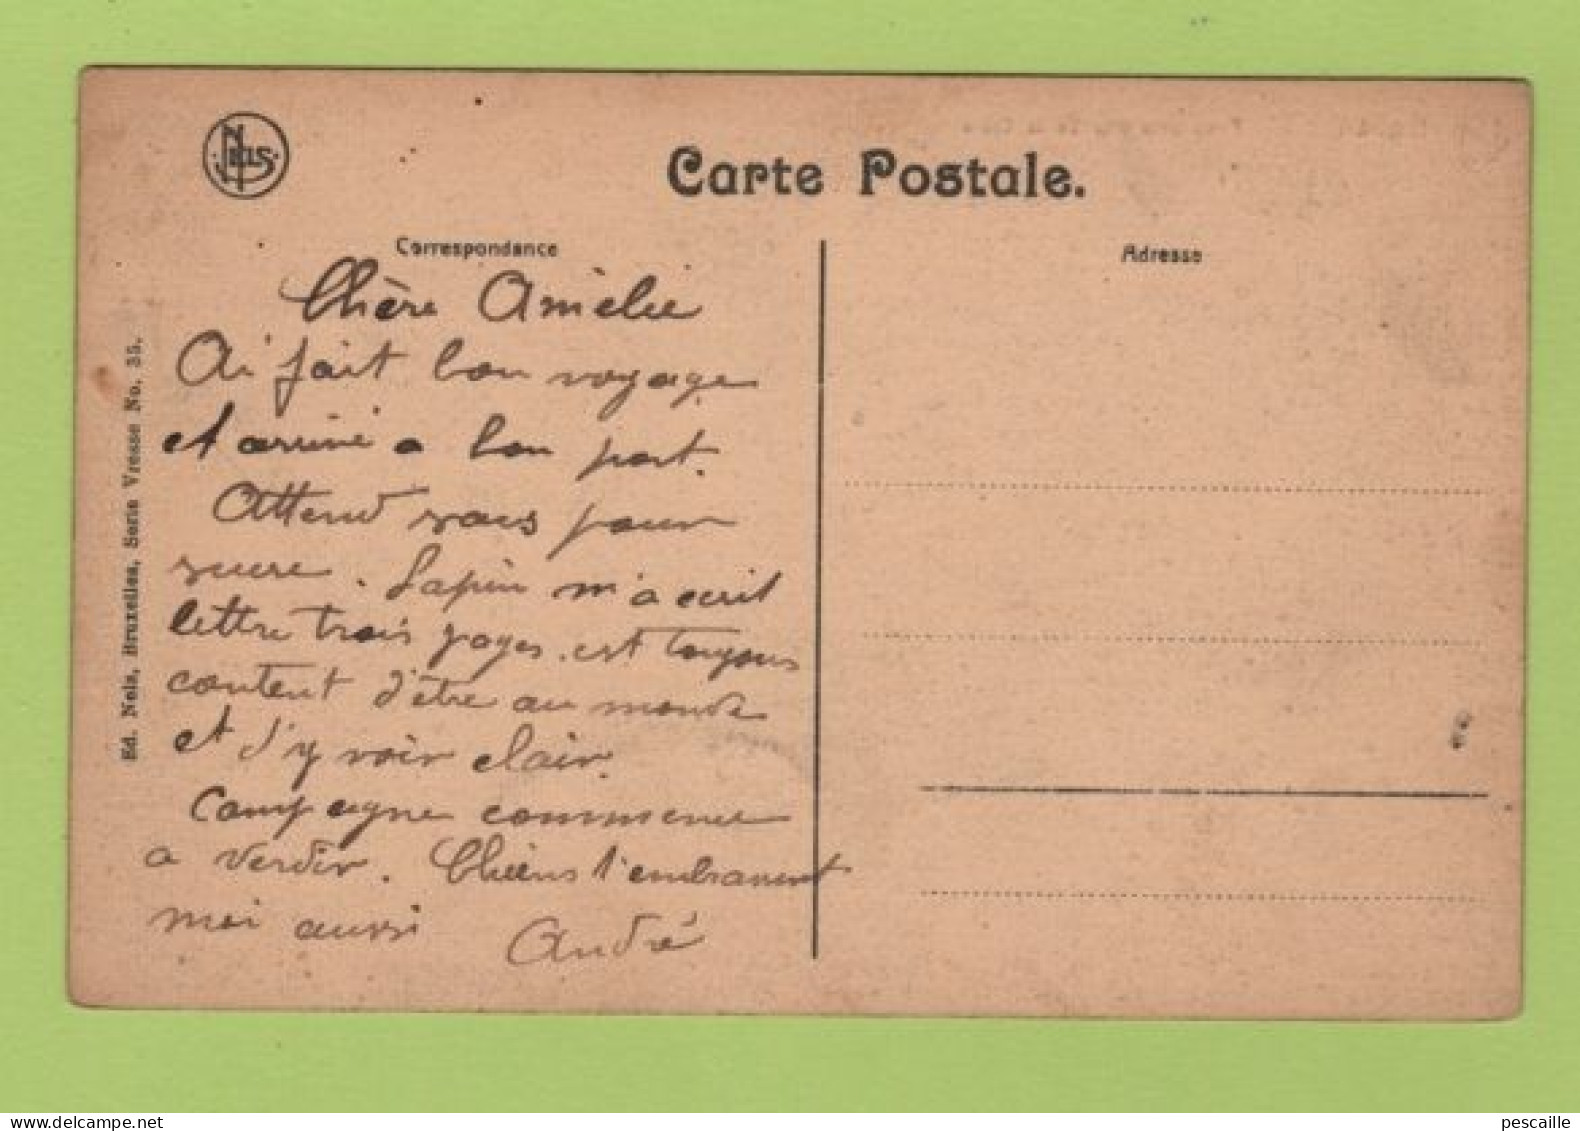 NELS
Carte Postale.
Correspondance
Adresse
Chère Amélie
Ai fait bon voyage
et arrivé a bon port.
Attend vous pour
sucre. Lapin m'a écrit
lettre trois pages. est toujours
content d'être au monde
et d'y voir clair.
Campagne commence
a verdir. Chiens t'embrassent
moi aussi André
Ed. Nels, Bruxelles, Serie Vresse No. 35.
pescaille